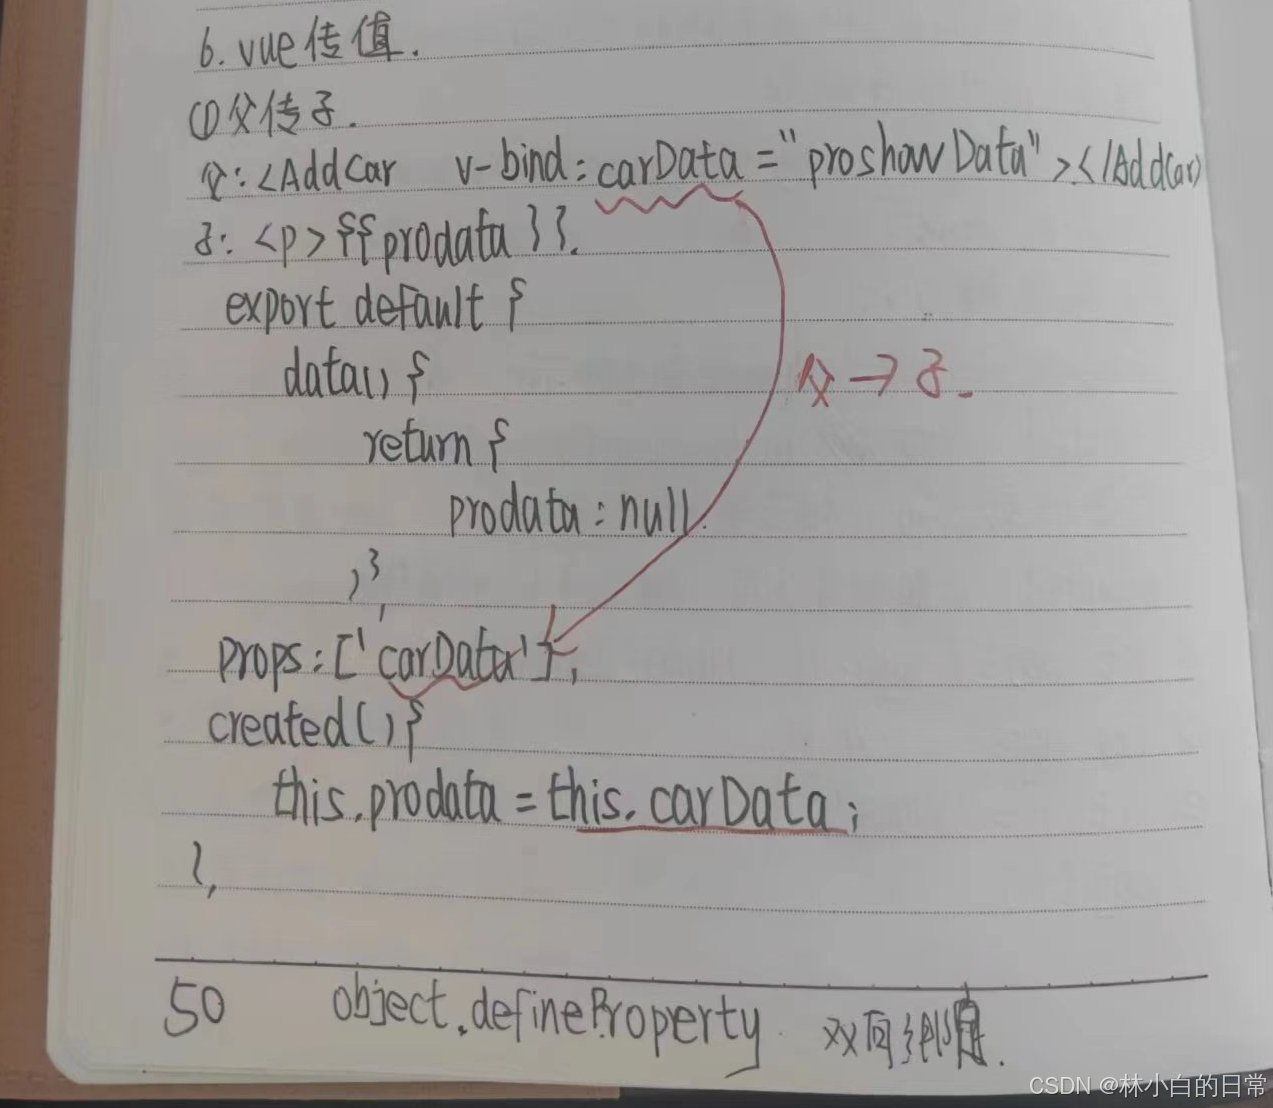 6. vue传值.
①父传子.
父:<AddCar v-bind:carData="proshowData"></AddCar>
子: <p>{{prodata}}.
export default {
data() {
return {
prodata:null.
}
props:['carData'],
created(){
this.prodata=this.carData;
},
父→子.
50 object.defineProperty 双向绑定.
CSDN @林小白的日常